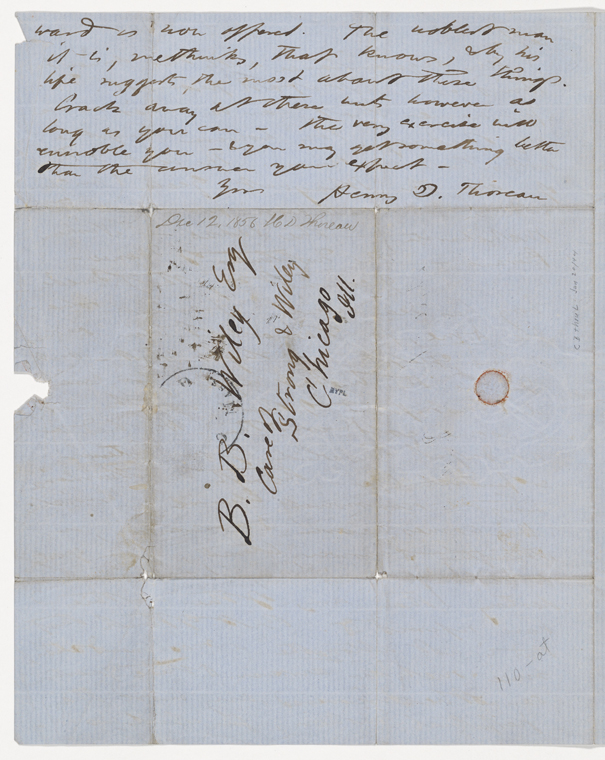 ward is now offered. The noblest man
it is, methinks, that knows, & by his
life suggests, the most about these things.
Crack away at these nuts however as
long as you can – the very exercise will
ennoble you – & you may get something better
than the answer you expect –
Yrs Henry D. Thoreau
Dec 12, 1856 H D Thoreau
B. B. Wiley Esq
Care of
Strong & Wiley
Chicago
Ill.
NYPL
110 - at